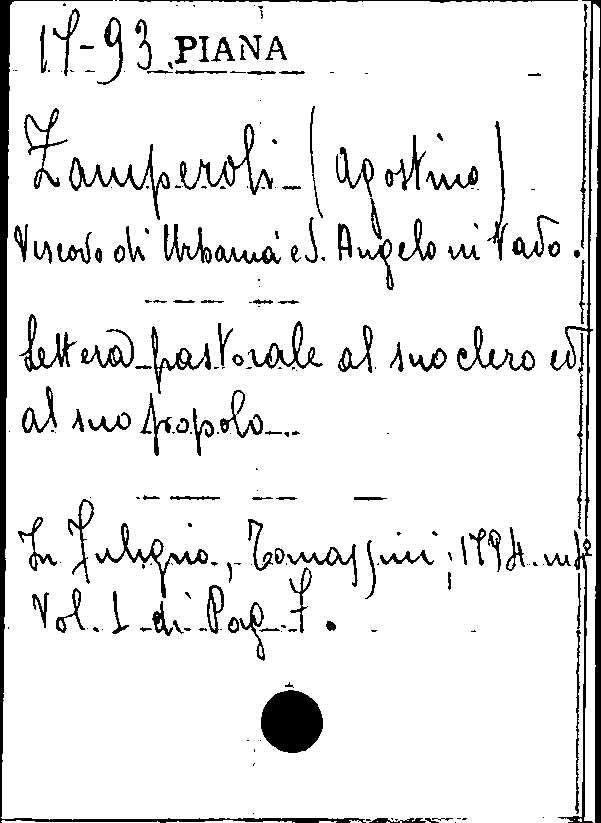 17-93 PIANA
Zamperoli (Agostino)
Vescovo di Urbania e S. Angelo in Vado.
Lettera pastorale al suo clero ed
al suo popolo.
In Fuligno, Tomassini; 1794. in 4º
Vol. 1 di Pag. 7.